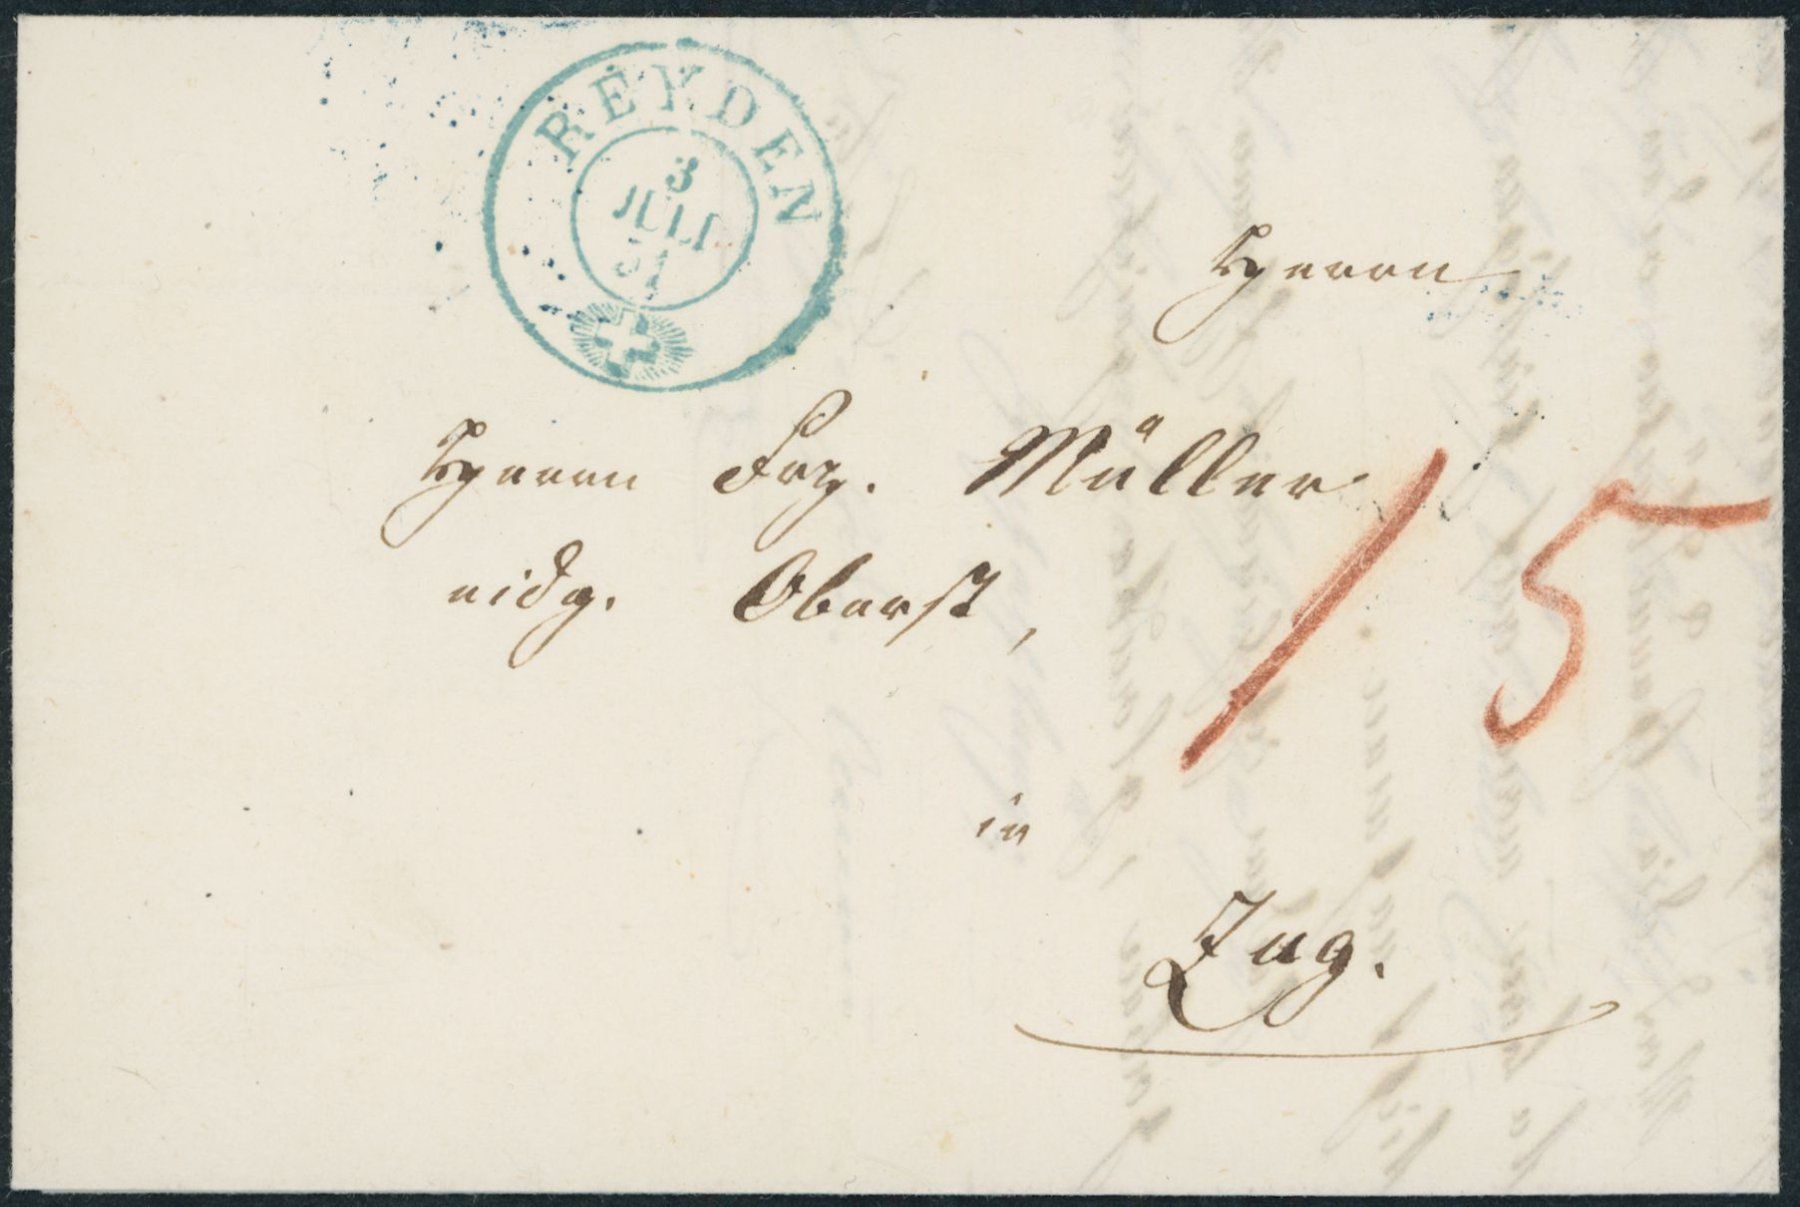 REYDEN
3
JULI
51
Herrn
Herrn Frz. Müller
eidg. Oberst,
15
in
Zug.